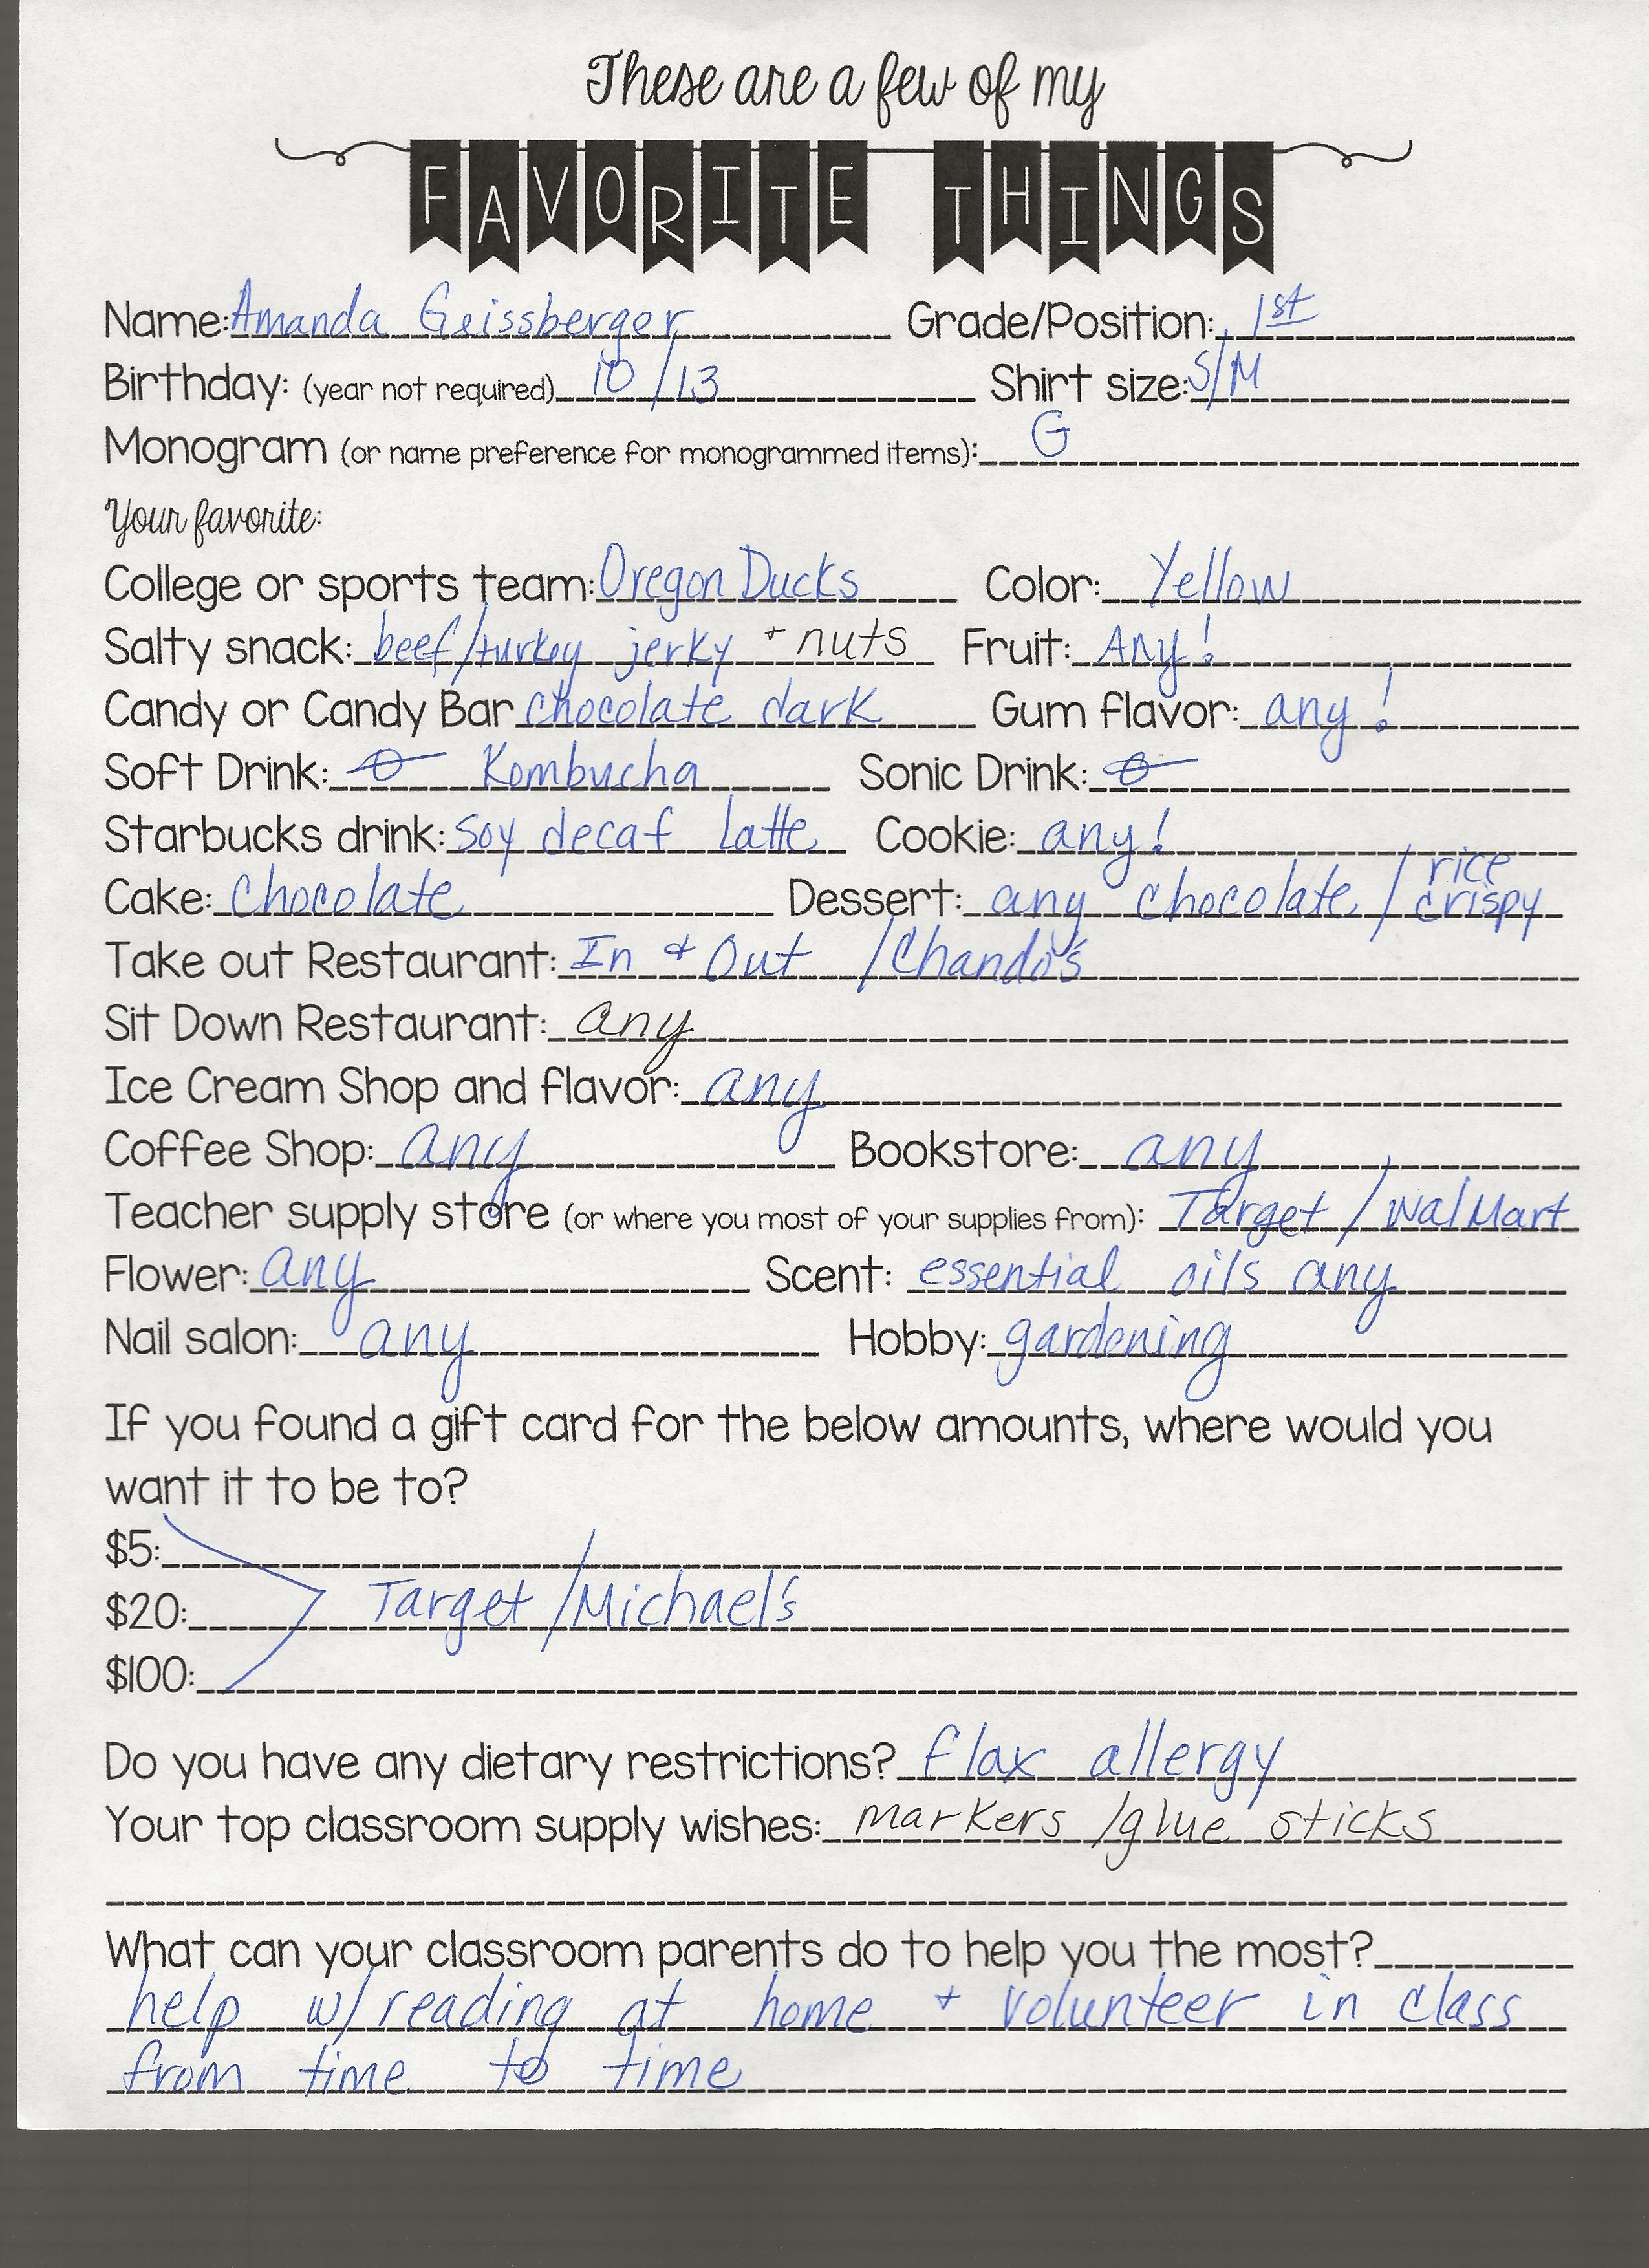 These are a few of my
FAVORITE THINGS
Name: Amanda Geissberger Grade/Position: 1st
Birthday: (year not required) 10/13 Shirt size: S/M
Monogram (or name preference for monogrammed items): G
Your favorite:
College or sports team: Oregon Ducks Color: Yellow
Salty snack: beef/turkey jerky + nuts Fruit: Any!
Candy or Candy Bar chocolate dark Gum flavor: any!
Soft Drink: Kombucha Sonic Drink:
Starbucks drink: soy decaf latte Cookie: any!
Cake: Chocolate Dessert: any chocolate / rice crispy
Take out Restaurant: In & Out / Chando's
Sit Down Restaurant: any
Ice Cream Shop and flavor: any
Coffee Shop: any Bookstore: any
Teacher supply store (or where you most of your supplies from): Target / WalMart
Flower: any Scent: essential oils any
Nail salon: any Hobby: gardening
If you found a gift card for the below amounts, where would you
want it to be to?
$5:
$20: Target / Michael's
$100:
Do you have any dietary restrictions? flax allergy
Your top classroom supply wishes: markers / glue sticks
What can your classroom parents do to help you the most?
help w/ reading at home + volunteer in class
from time to time